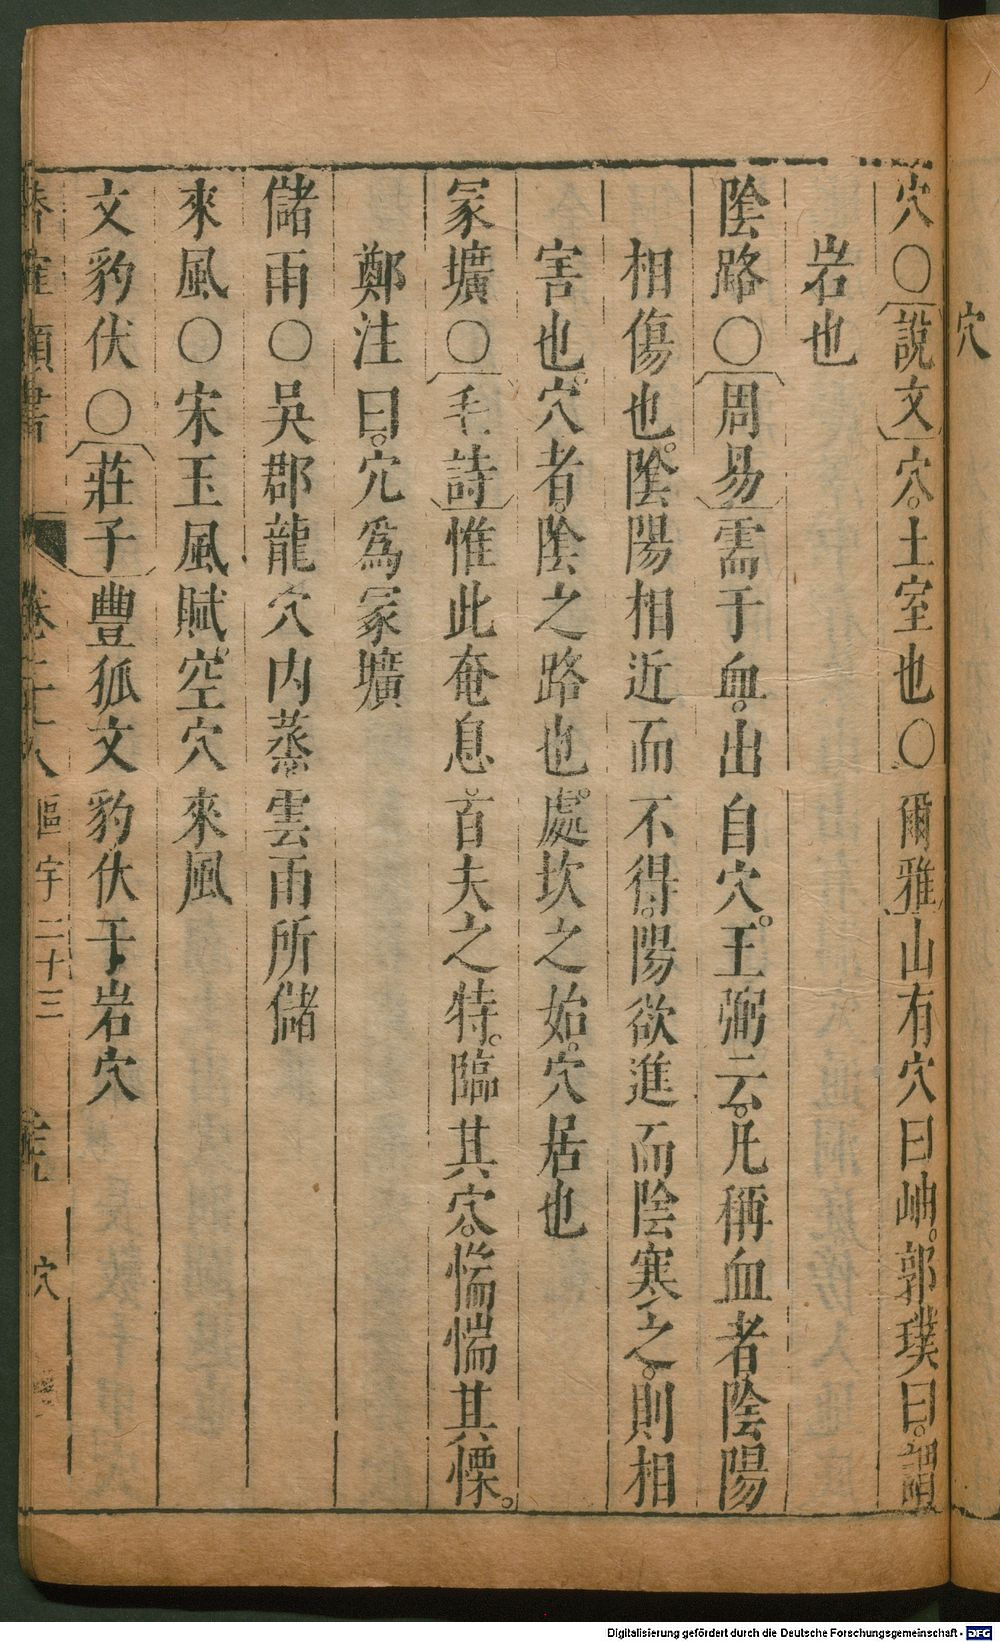 穴○說文穴土室也○爾雅山有穴曰岫郭璞曰謂
岩也
陰路○周易需于血出自穴王弼云凡稱血者陰陽
相傷也陰陽相近而不得陽欲進而陰塞之則相
害也穴者陰之路也處坎之始穴居也
冢壙○毛詩惟此奄息百夫之特臨其穴惴惴其慄
鄭注曰穴爲冢壙
儲雨○吳郡龍穴内蒸雲雨所儲
來風○宋玉風賦空穴來風
文豹伏○莊子豐狐文豹伏于岩穴
類書 卷二十八 區宇二十三 穴
穴
Digitalisierung gefördert durch die Deutsche Forschungsgemeinschaft - DFG